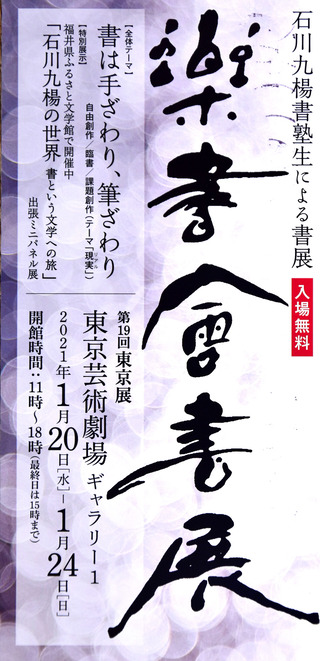 石川九楊書塾生による書展
入場無料
樂書會書展
【全体テーマ】
書は手ざわり、筆ざわり
自由創作／臨書／課題創作（テーマ「現実」）
【特別展示】
福井県ふるさと文学館で開催中
「石川九楊の世界 書という文学への旅」
出張ミニパネル展
第19回東京展
東京芸術劇場 ギャラリー1
2021年1月20日[水]－1月24日[日]
開館時間：11時〜18時（最終日は15時まで）